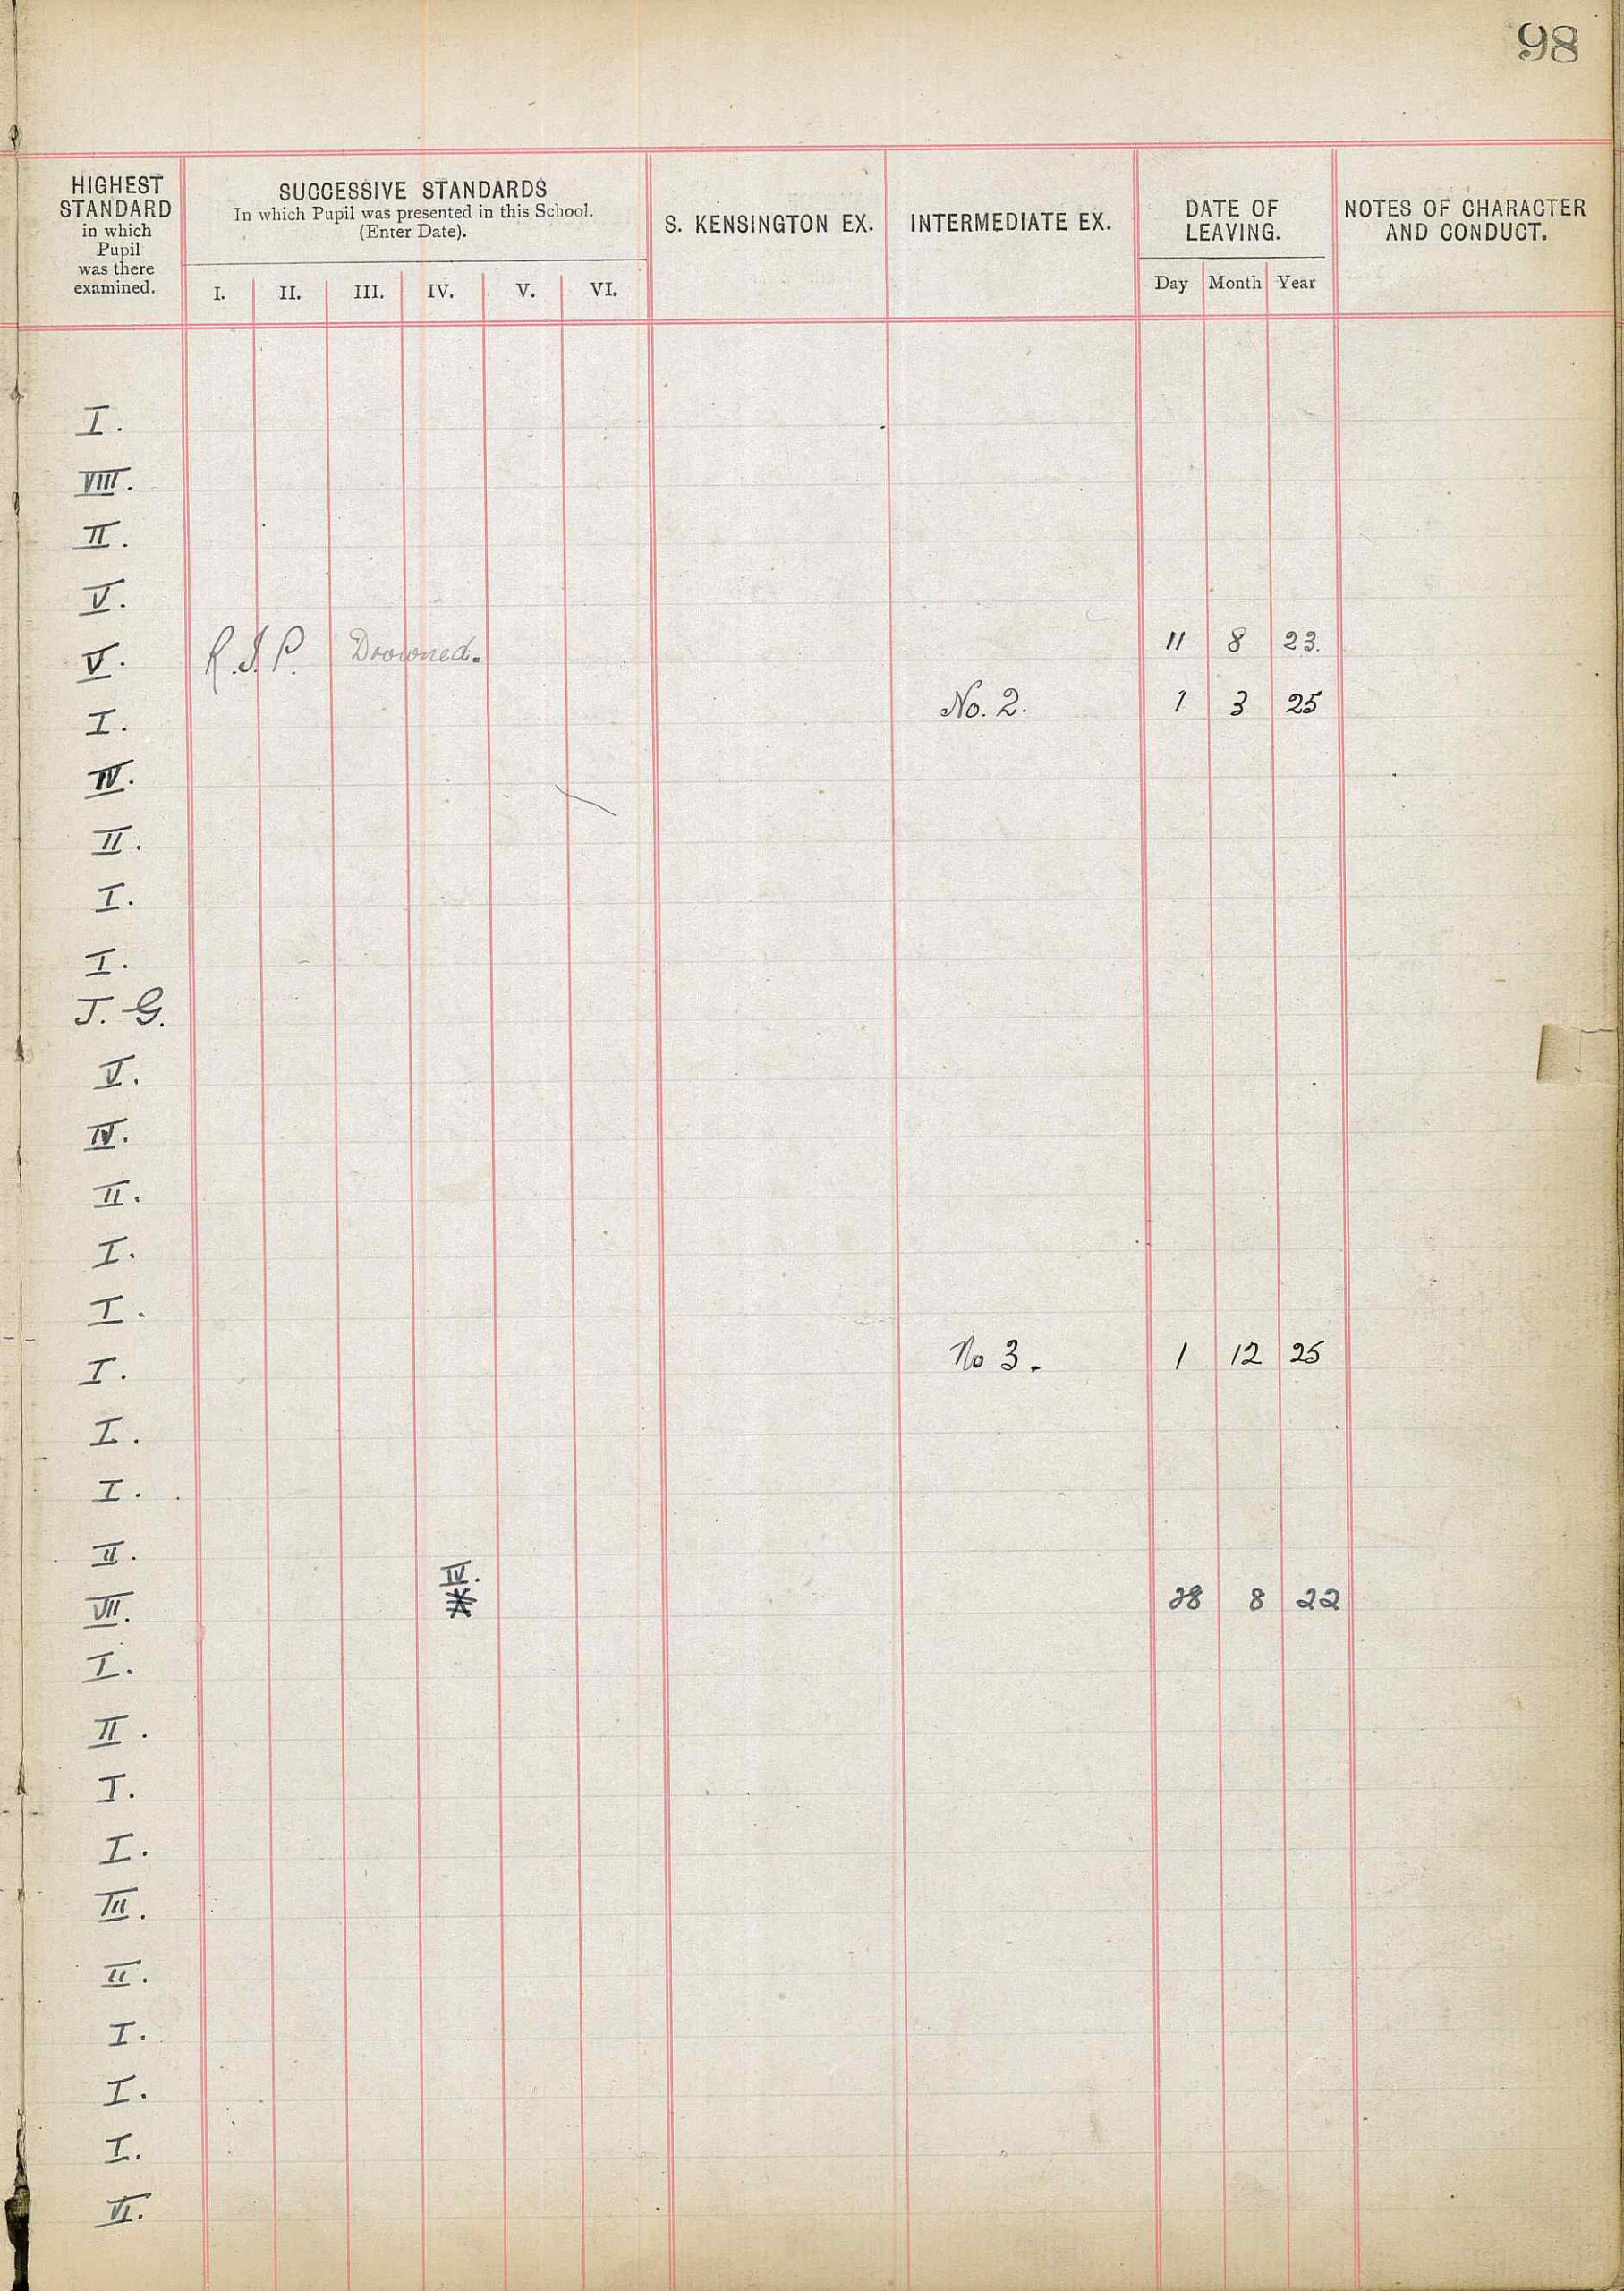 98
HIGHEST STANDARD in which Pupil was there examined.
SUCCESSIVE STANDARDS
In which Pupil was presented in this School.
(Enter Date).
I. II. III. IV. V. VI.
S. KENSINGTON EX.
INTERMEDIATE EX.
DATE OF LEAVING.
Day Month Year
NOTES OF CHARACTER AND CONDUCT.
I.
VIII.
II.
V.
V. R.I.P. Drowned. 11 8 23.
I. No. 2. 1 3 25
IV.
II.
I.
I.
J. G.
V.
IV.
II.
I.
I.
I. No 3. 1 12 25
I.
I.
II.
IV.
VII. 28 8 22
I.
II.
I.
I.
III.
II.
I.
I.
I.
VI.